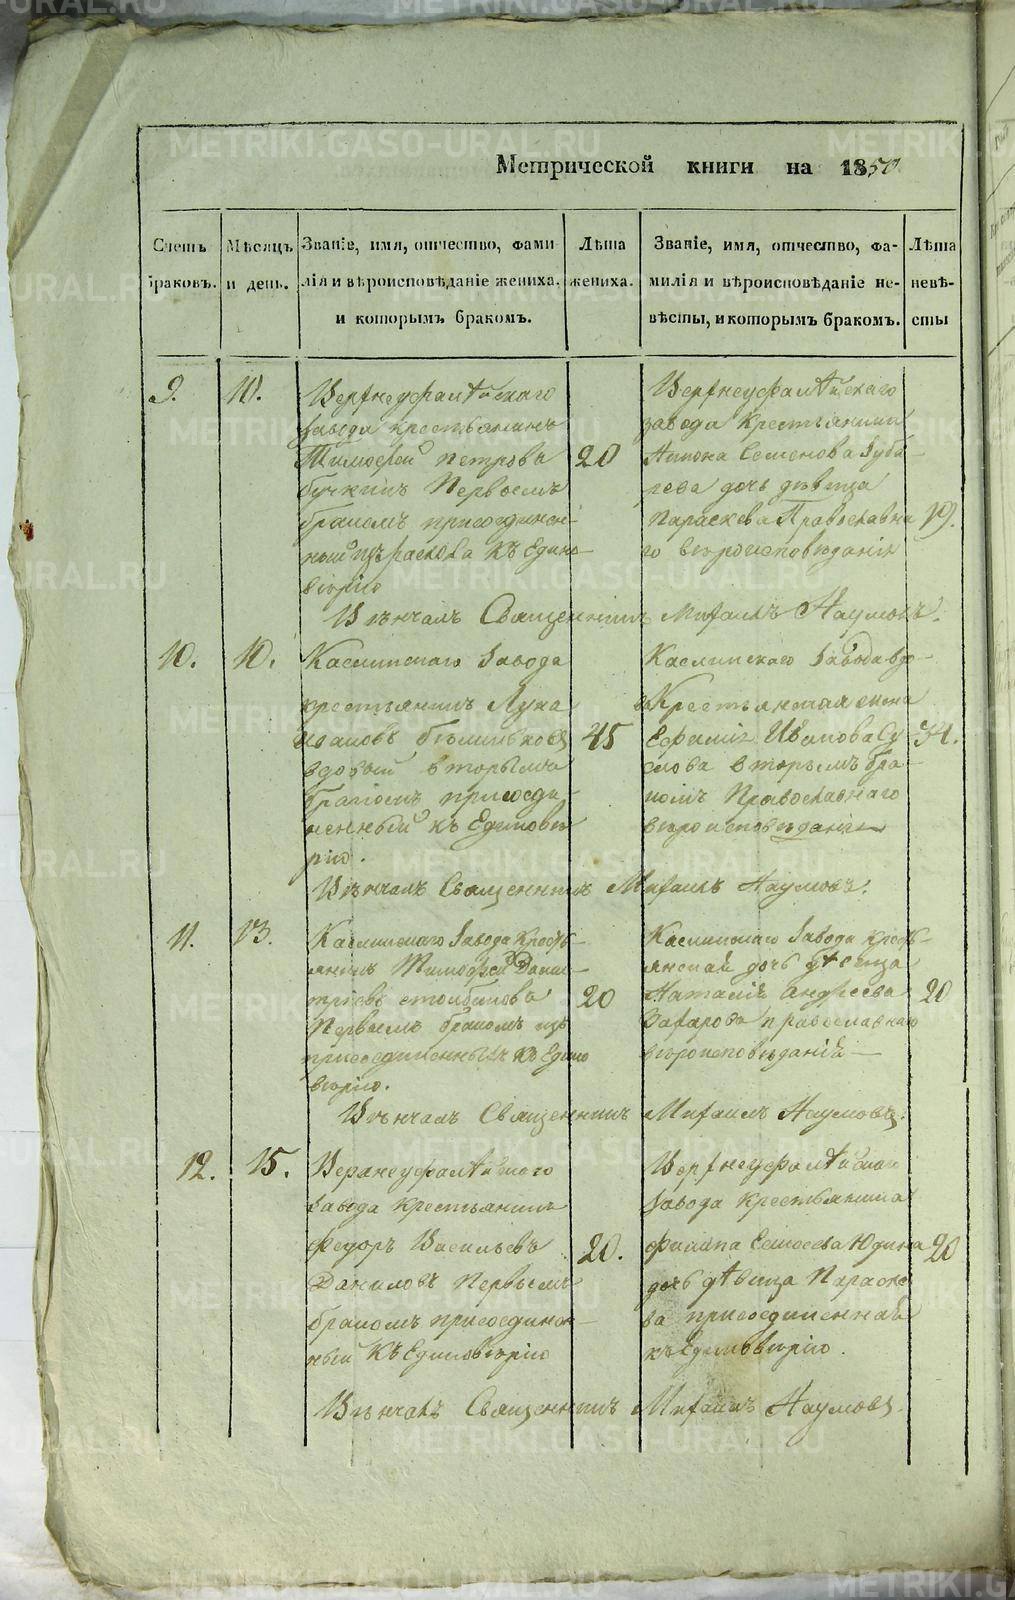 Метрической книги на 1850
Счетъ браковъ.
Мѣсяцъ и день.
Званіе, имя, отчество, фами-
лія и вѣроисповѣданіе жениха,
и которымъ бракомъ.
Лѣта
жениха.
Званіе, имя, отчество, фа-
милія и вѣроисповѣданіе не-
вѣсты, и которымъ бракомъ.
Лѣта
невѣ-
сты
9.
10.
Верхнеуфалѣйскаго
завода крестьянинъ
Тимофей Петровъ
Первымъ
бракомъ присоединен-
ный изъ раскола къ Едино-
вѣрію
20
Верхнеуфалѣйскаго
завода крестьянина
Семенова Зуба-
рева дочь дѣвица
Параскева Православна
го вѣроисповѣданія
19.
Вѣнчалъ Священникъ Михаилъ Наумовъ.
10.
10.
Каслинскаго Завода
крестьянинъ Лука
Ивановъ
вдовый вторымъ
бракомъ присоеди-
ненный къ Единовѣ
рію.
45
Каслинскаго Завода вдо-
ва Крестьянская жена
Ефимія Иванова Су-
слова вторымъ бра-
комъ Православнаго
вѣроисповѣданія
34.
Вѣнчалъ Священникъ Михаилъ Наумовъ.
11.
13.
Каслинскаго Завода Кресть-
янинъ Тимофей
Первымъ бракомъ изъ
присоединенныхъ къ Едино
вѣрію.
20
Каслинскаго Завода Кресть-
янская дочь дѣвица
Наталія Андреева
Захарова православнаго
вѣроисповѣданія
20
Вѣнчалъ Священникъ Михаилъ Наумовъ.
12.
15.
Верхнеуфалѣйскаго
Завода крестьянинъ
Федоръ Васильевъ
Даниловъ Первымъ
бракомъ присоединен-
ный къ Единовѣрію
20.
Верхнеуфалѣйскаго
Завода Крестьянина
Филипа Юдина
дочь дѣвица Параске-
ва присоединенная
къ Единовѣрію.
20
Вѣнчалъ Священникъ Михаилъ Наумовъ.
METRIKI.GASO-URAL.RU